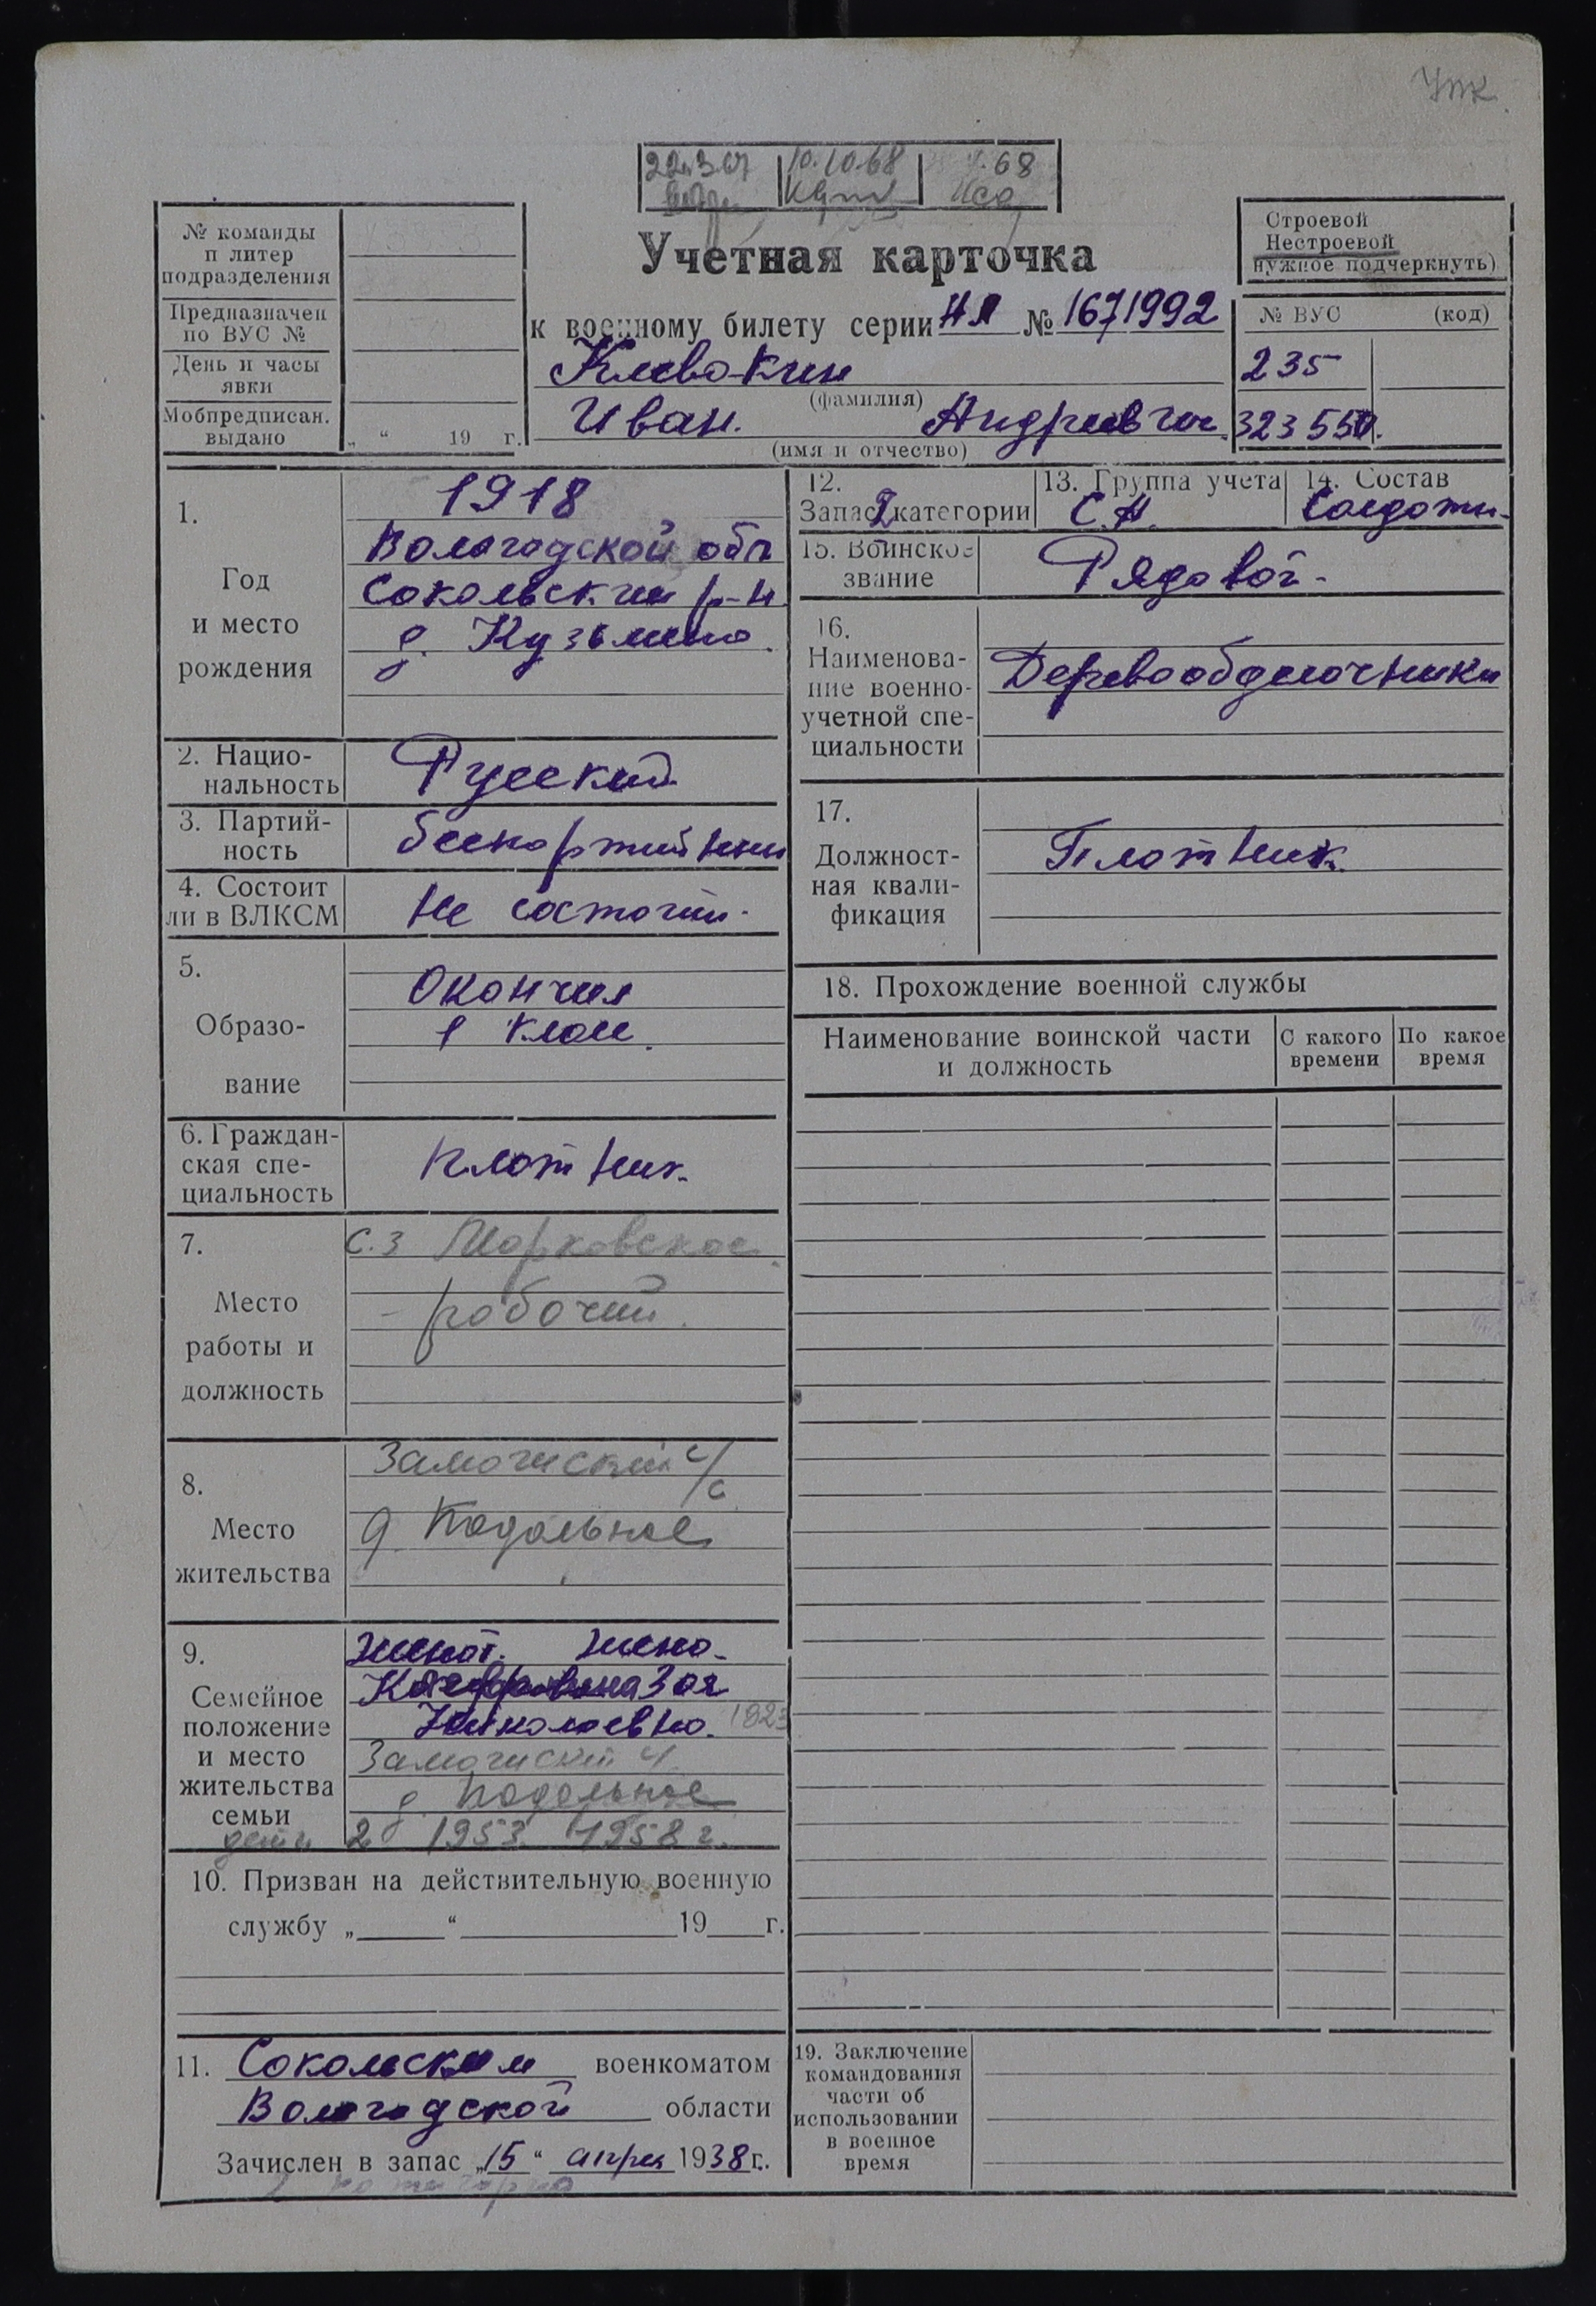 УПК
22.3.67 10.10.68 68
Учетная карточка
к военному билету серии НЛ № 1671992
Клевакин
(фамилия)
Иван. Андреевич.
(имя и отчество)
Строевой
Нестроевой
нужное подчеркнуть)
№ ВУС (код)
235
323550.
№ команды
п литер
подразделения
Предназначен
по ВУС №
День и часы
явки
Мобпредписан.
выдано „ “ 19 г.
1.
Год
и место
рождения
1918
Вологодской обл
Сокольский р-н
д. Кузьмино.
2. Нацио-
нальность
Русский
3. Партий-
ность
беспартийный
4. Состоит
ли в ВЛКСМ
Не состоит.
5.
Образо-
вание
Окончил
1 класс.
6. Граждан-
ская спе-
циальность
плотник.
7.
Место
работы и
должность
с.з Марковское.
- рабочий.
8.
Место
жительства
Замочиский с/с
д. Подольное
9.
Семейное
положение
и место
жительства
семьи
женат. жена.
Зоя
Николаевна. 1923
Замочиский с/
д. Подольное
дети 2 1953. 1958 г.
10. Призван на действительную военную
службу „ “ 19 г.
11. Сокольским военкоматом
Вологодской области
Зачислен в запас „15“ апрел 1938 г.
12.
Запас 2 категории
13. Группа учета
С.А.
14. Состав
Солдаты.
15. Воинское
звание
Рядовой.
16.
Наименова-
ние военно-
учетной спе-
циальности
Деревообделочники
17.
Должност-
ная квали-
фикация
Плотник.
18. Прохождение военной службы
Наименование воинской части
и должность
С какого
времени
По какое
время
19. Заключение
командования
части об
использовании
в военное
время